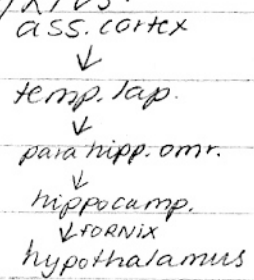 ass. cortex
↓
temp. lap.
↓
para hipp. omr.
↓
hippocamp.
↓ FORNIX
hypothalamus